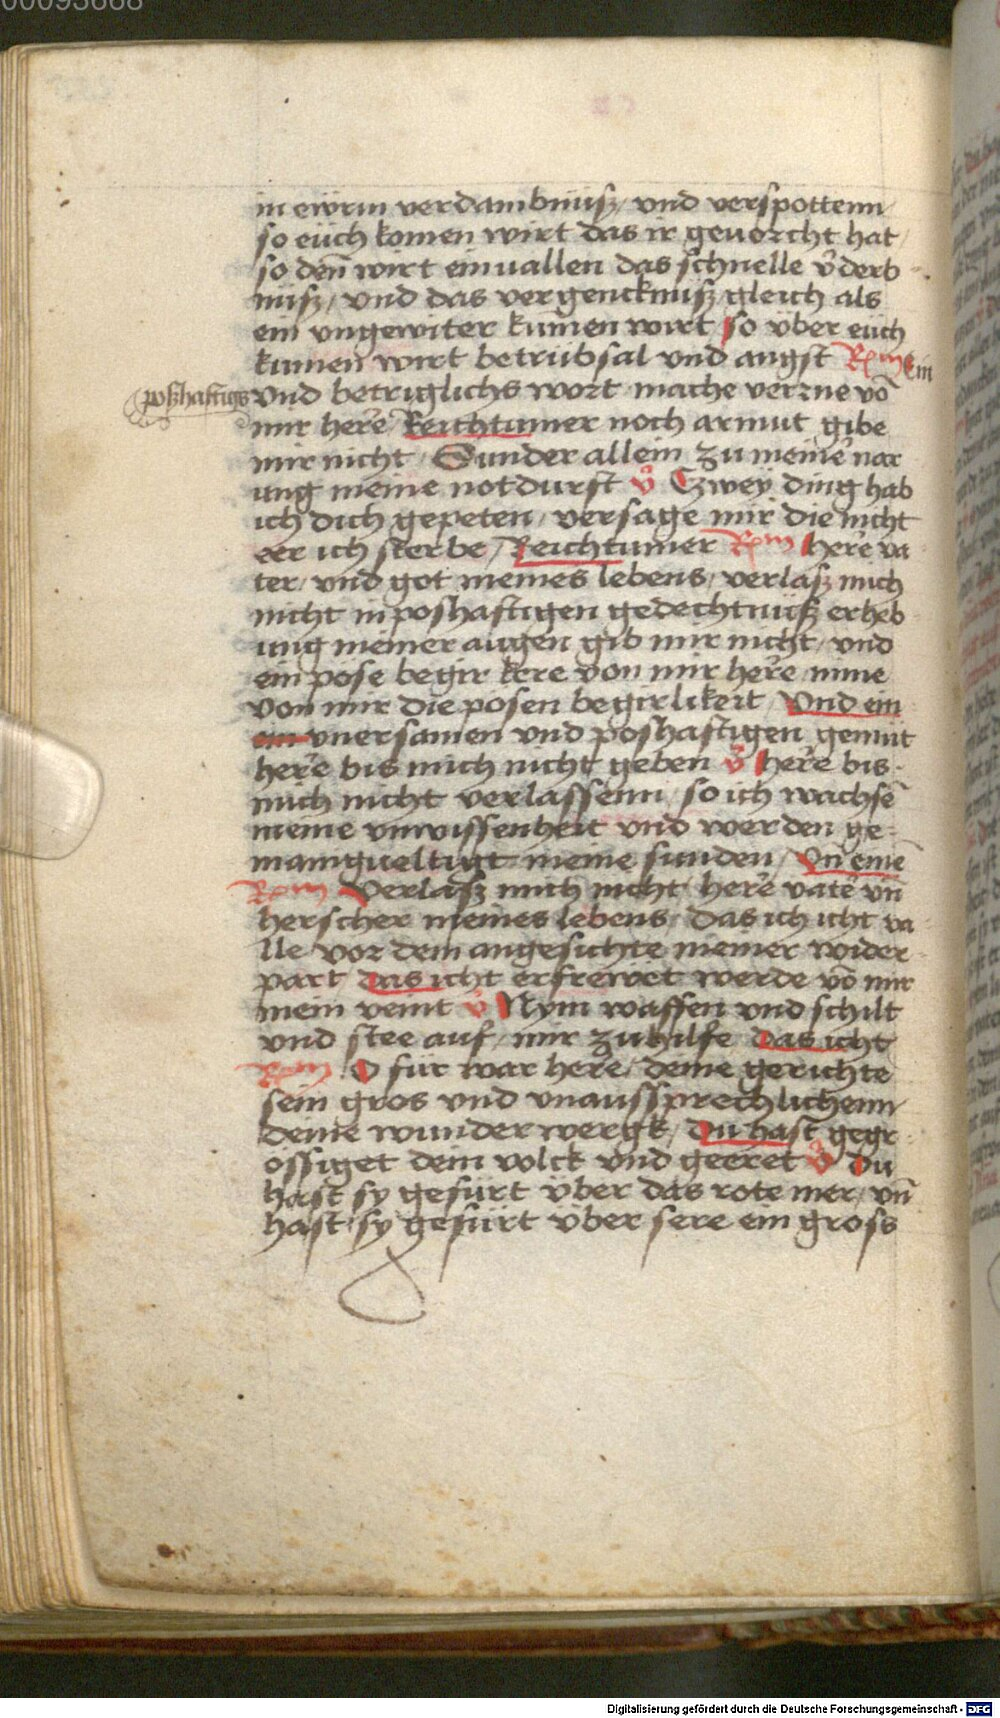 00093668
in ewrm verdambnüsz / vnd verspottenn /
so eüch komen wirt das ir gevorcht hat /
so deñ wirt einuallen das schnelle v̄derb
nüsz / vnd das vergencknüsz gleich als
ein vngewiter kumen wirt so vber eüch
kumen wirt betrübsal vnd angst Rm̄ Ein
poszhaftigs vnd betriglichs wort mache verrne vō
mir here Reichtumer noch armut gibe
mir nicht / Sunder allein zu meine nar
ung meine notdurft v̊ Czwey ding hab
ich dich gepeten / versage mir die nicht
eer ich sterbe / Reichtumer Rm̄ here va
ter / vnd got meines lebens / verlasz mich
nicht in poshaftigen gedechtnüsz erheb
ung meiner augen gib mir nicht / vnd
ein pose begir kere von mir here nime
von mir die posen begirlikeit / Vnd ein
vnersamen vnd poshaftigen gemüt
here bis mich nicht geben v̊ here bis
mich nicht verlassenn / so ich wachsē
meine vnwissenheit vnd werden ge
manigueltigt meine sunden / Vn̄ einē
Rm̄ Verlasz mich nicht here vatē vn̄
herscher meines lebens / das ich icht va
lle vor dem angesichte meiner wider
part das icht erfrewet werde vō mir
mein veint v̊ Nym waffen vnd schilt
vnd stee auf / mir zu hilfe das icht
Rm̄ O für war here / deine gerichte
sein gros vnd vnaussprechlichenn
deine wunderwergk / du hast gegr
össiget dein volck vnd geeret v̊ Du
hast sy gefürt vber das rote mer / vn̄
hast sy gefürt vber sere ein gross
Digitalisierung gefördert durch die Deutsche Forschungsgemeinschaft - DFG